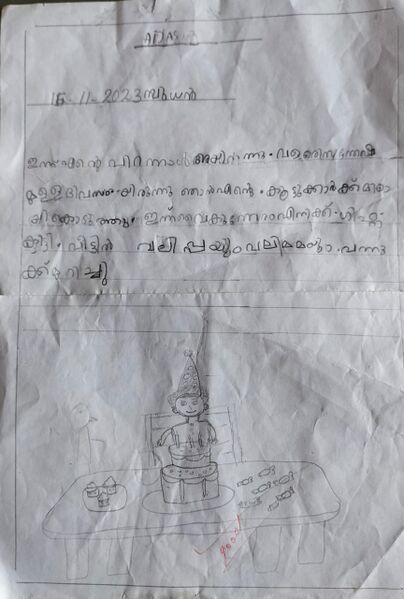 15-11-2023 ബുധൻ
ഇന്ന് എന്റെ പിറന്നാൾ ആയിരുന്നു. വളരെ സന്തോഷ
മുള്ള ദിവസമായിരുന്നു ഞാൻ എന്റെ. കൂട്ടുകാർക്ക് മിഠാ
യി കൊടുത്തു. ഇന്ന് വൈകുന്നേരം എനിക്ക്.
കിട്ടി. വീട്ടിൽ വലിപ്പയും വലിമ്മയും വന്നു
ക്ക് മുറിച്ചു
good